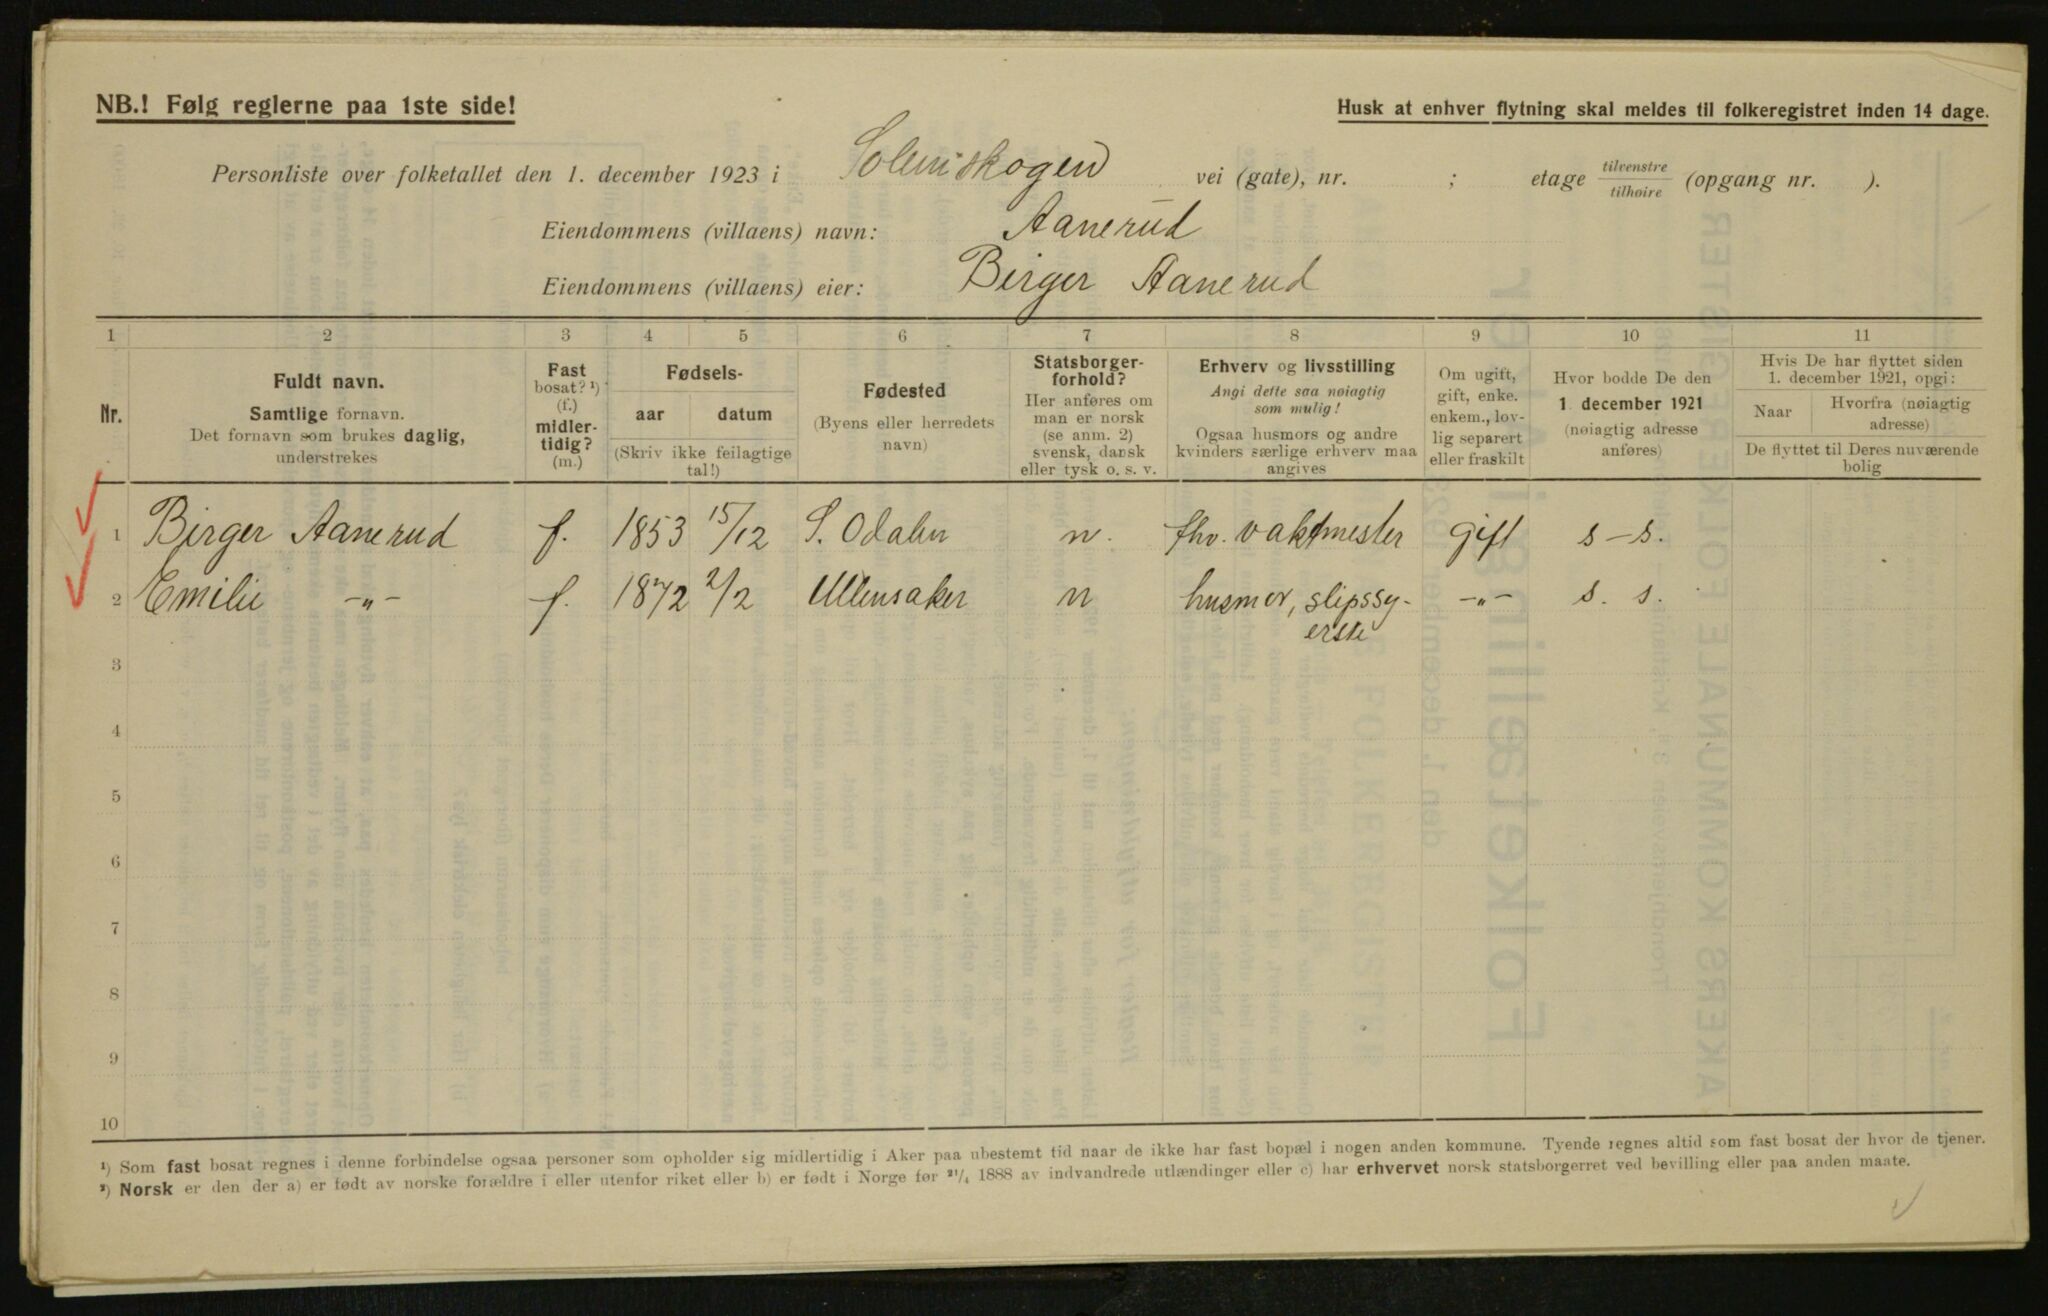 NB.! Følg reglerne paa 1ste side!
Husk at enhver flytning skal meldes til folkeregistret inden 14 dage.
Personliste over folketallet den 1. december 1923 i Solemskogen vei (gate), nr. ; etage tilvenstre / tilhøire (opgang nr. ).
Eiendommens (villaens) navn: Aanerud
Eiendommens (villaens) eier: Birger Aanerud
1 2 3 4 5 6 7 8 9 10 11
Nr.
Fuldt navn.
Samtlige fornavn.
Det fornavn som brukes daglig,
understrekes
Fast
bosat? ¹)
(f.)
midler-
tidig?
(m.)
Fødsels-
aar datum
(Skriv ikke feilagtige
tal!)
Fødested
(Byens eller herredets
navn)
Statsborger-
forhold?
Her anføres om
man er norsk
(se anm. 2)
svensk, dansk
eller tysk o. s. v.
Erhverv og livsstilling
Angi dette saa nøiagtig
som mulig!
Ogsaa husmors og andre
kvinders særlige erhverv maa
angives
Om ugift,
gift, enke.
enkem., lov-
lig separert
eller fraskilt
Hvor bodde De den
1 december 1921
(nøiagtig adresse
anføres)
Hvis De har flyttet siden
1. december 1921, opgi:
Naar Hvorfra (nøiagtig
adresse)
De flyttet til Deres nuværende
bolig
1 Birger Aanerud f. 1853 15/12 S. Odalen n. fhv. vaktmester gift s-s.
2 Emilie -„- f. 1872 2/2 Ullensaker n husmor, slipssy-
erske -„- s. s.
3
4
5
6
7
8
9
10
¹) Som fast bosat regnes i denne forbindelse ogsaa personer som opholder sig midlertidig i Aker paa ubestemt tid naar de ikke har fast bopæl i nogen anden kommune. Tyende regnes altid som fast bosat der hvor de tjener.
²) Norsk er den der a) er født av norske forældre i eller utenfor riket eller b) er født i Norge før ²¹/₄ 1888 av indvandrede utlændinger eller c) har erhvervet norsk statsborgerret ved bevilling eller paa anden maate.